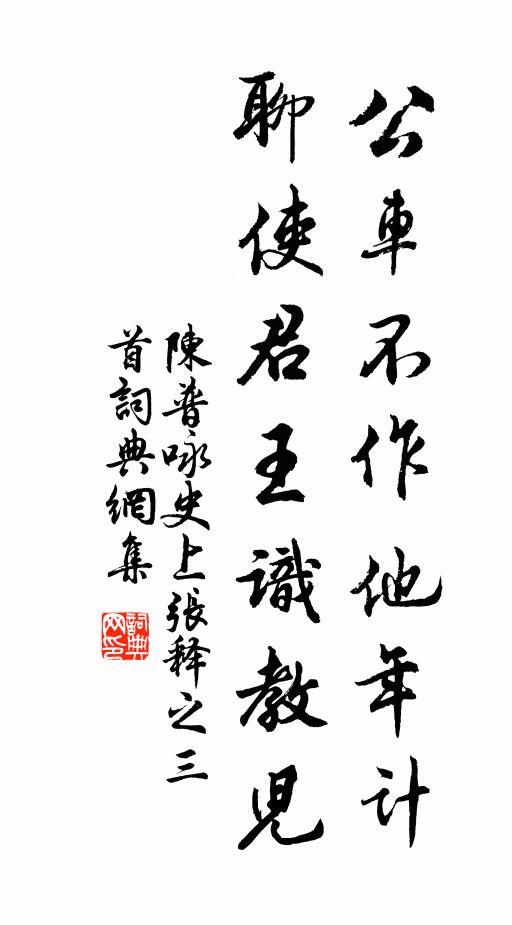 公車不作他年計
聊使君王識教児
陳普咏史上張释之三
首詞典網集
詞典
网印